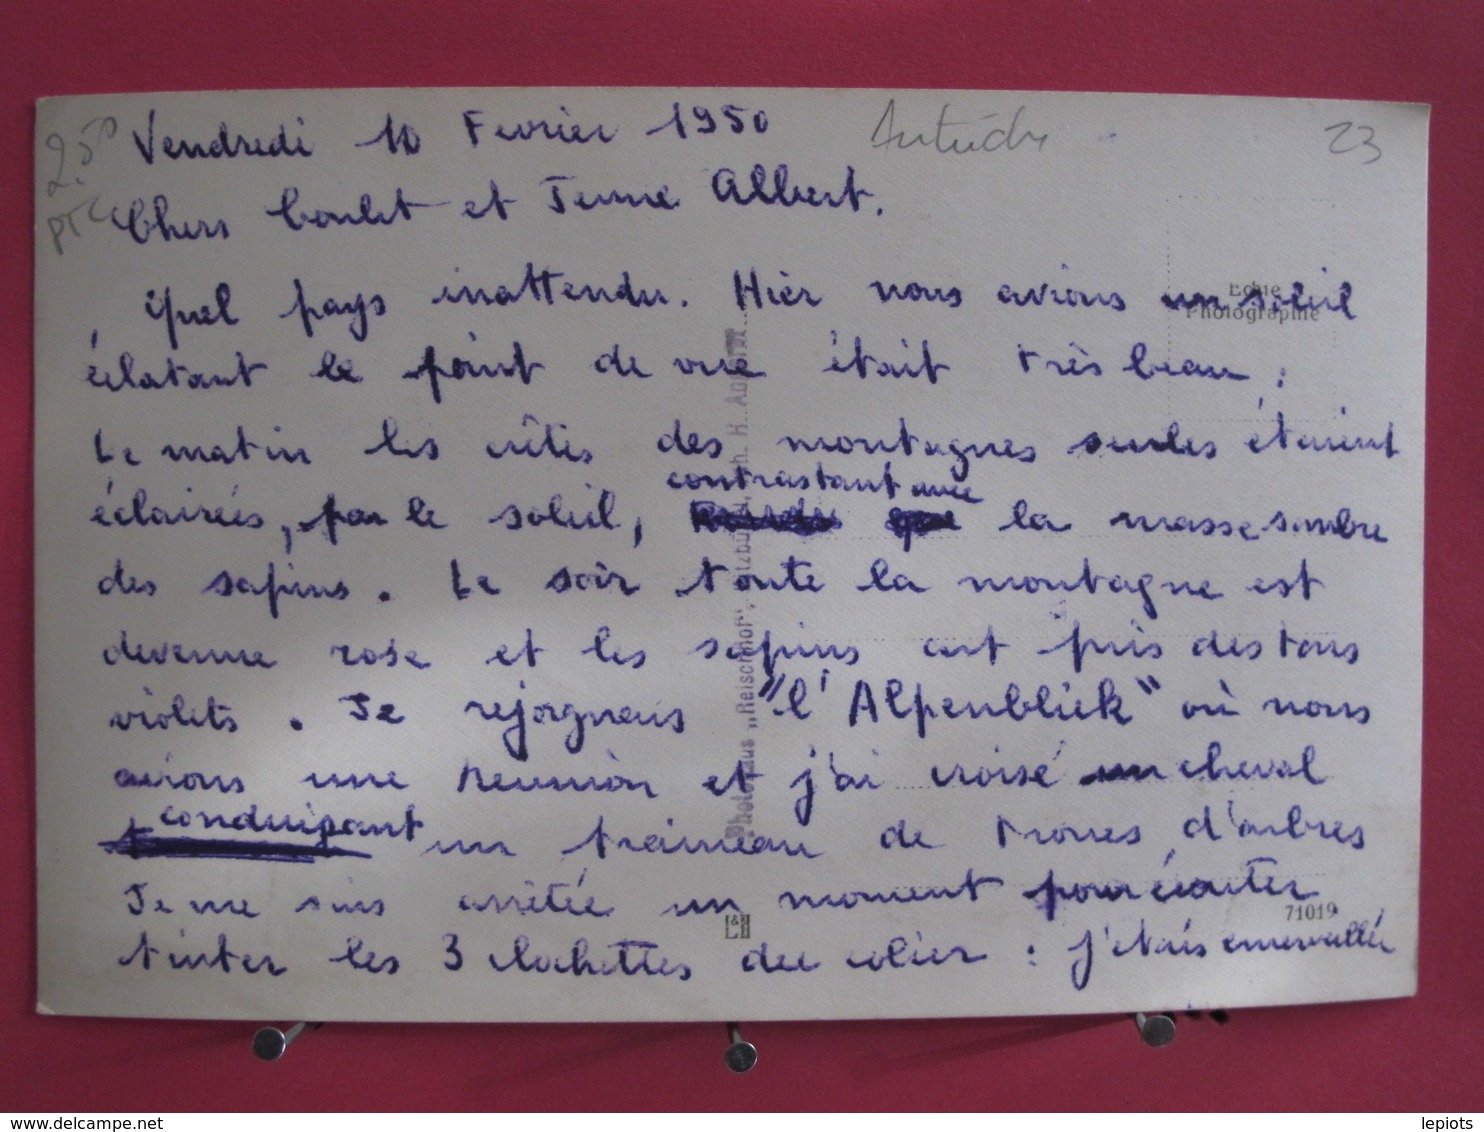 2.50
PTC
Vendredi 10 Fevrier 1950
Autriche
23
Chers et Albert.
Quel pays inattendu. Hier nous avions un soleil
éclatant le point de vue était très beau :
Le matin les crêtes des montagnes seules étaient
contrastant avec
éclairées, par le soleil, la masse sombre
des sapins. Le soir toute la montagne est
devenue rose et les sapins ont pris des tons
violets. Je rejoignais "l'Alpenblick" où nous
avions une réunion et j'ai croisé un cheval
conduisant
un traineau de troncs d'arbres
Je me suis arrêtée un moment pour écouter
tinter les 3 clochettes du colier : j'étais émerveillée
Echte
Photographie
Photohaus "Reischhof", Salzburg, Inh. H.
L&H
71019
delcampe.net
lepiots